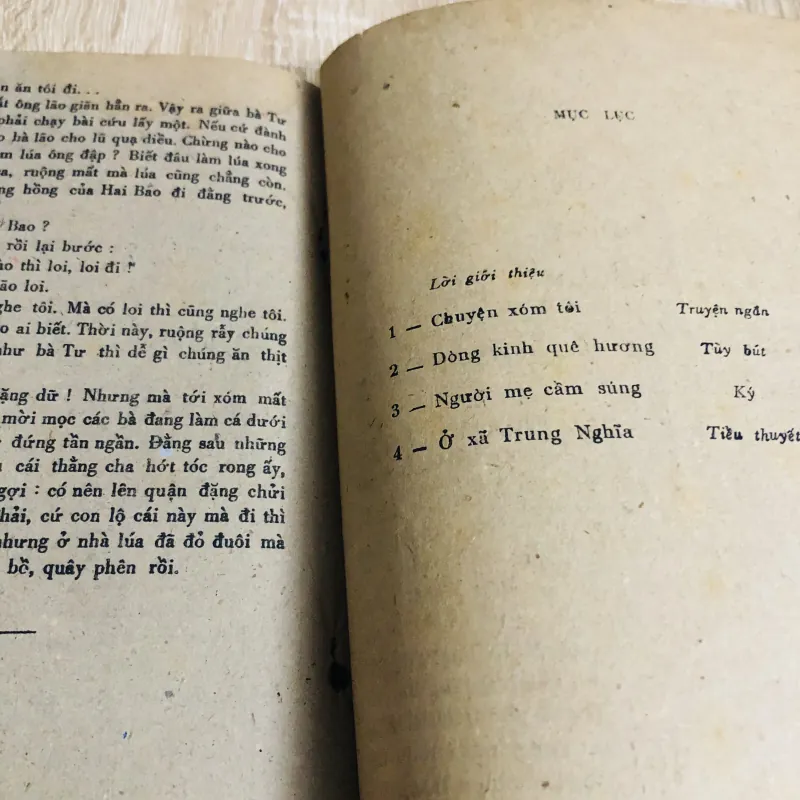 n ăn tói đi. . .
ắt ông lão giãn hẳn ra. Vậy ra giữa bà Tư
phải chạy bài cứu lấy một. Nếu cứ đành
o bà lão cho lũ quạ diều. Chừng nào cho
m lúa ông đập ? Biết đâu làm lúa xong
a, ruộng mất mà lúa cũng chẳng còn.
ng hồng của Hai Bao đi đằng trước,
Bao ?
rồi lại bước :
ào thì loi, loi đi !
ão loi.
ghe tôi. Mà có loi thì cũng nghe tôi.
o ai biết. Thời này, ruộng rẫy chúng
như bà Tư thì dễ gì chúng ăn thịt
ặng dữ ! Nhưng mà tới xóm mất
mời mọc các bà đang làm cá dưới
đứng tần ngần. Đằng sau những
cái thằng cha hớt tóc rong ấy,
gợi : có nên lên quận đặng chửi
hải, cứ con lộ cái này mà đi thì
nhưng ở nhà lúa đã đỏ đuôi mà
bồ, quây phên rồi.
MỤC LỤC
Lời giới thiệu
1 — Chuyện xóm tôi Truyện ngắn
2 — Dòng kinh quê hương Tùy bút
3 — Người mẹ cầm súng Ký
4 — Ở xã Trung Nghĩa Tiểu thuyết